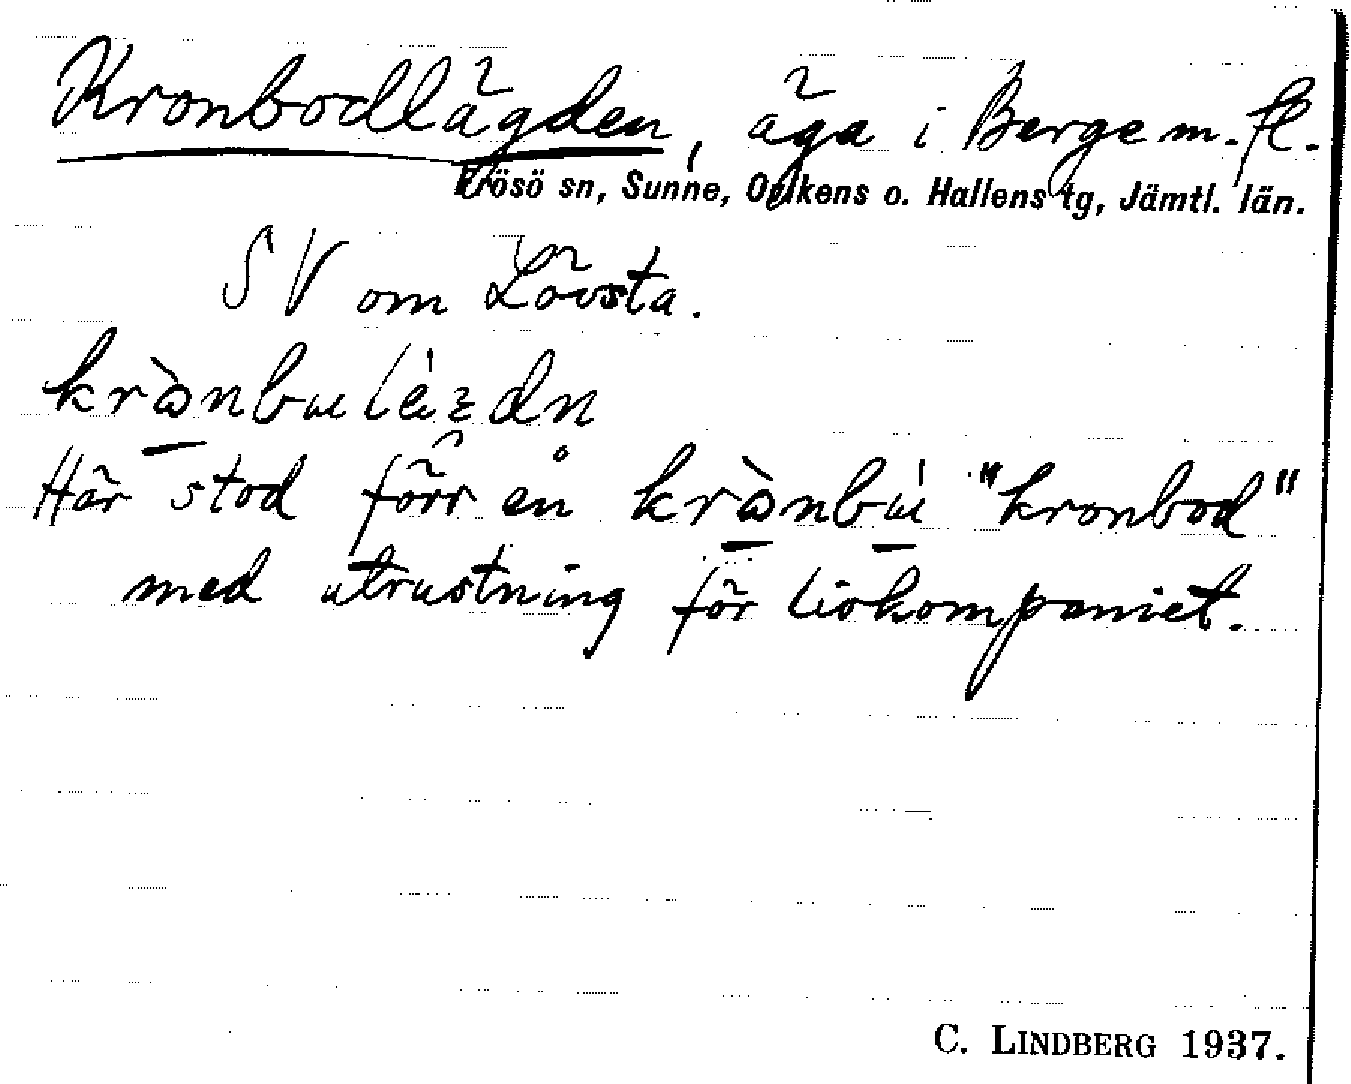 Kronbodlägden, äga i Berge m.fl.
Frösö sn, Sunne, Ovikens o. Hallens tg, Jämtl. län.
SV om Lövsta.
Här stod förr en "kronbod"
med utrustning för livkompaniet.
C. LINDBERG 1937.